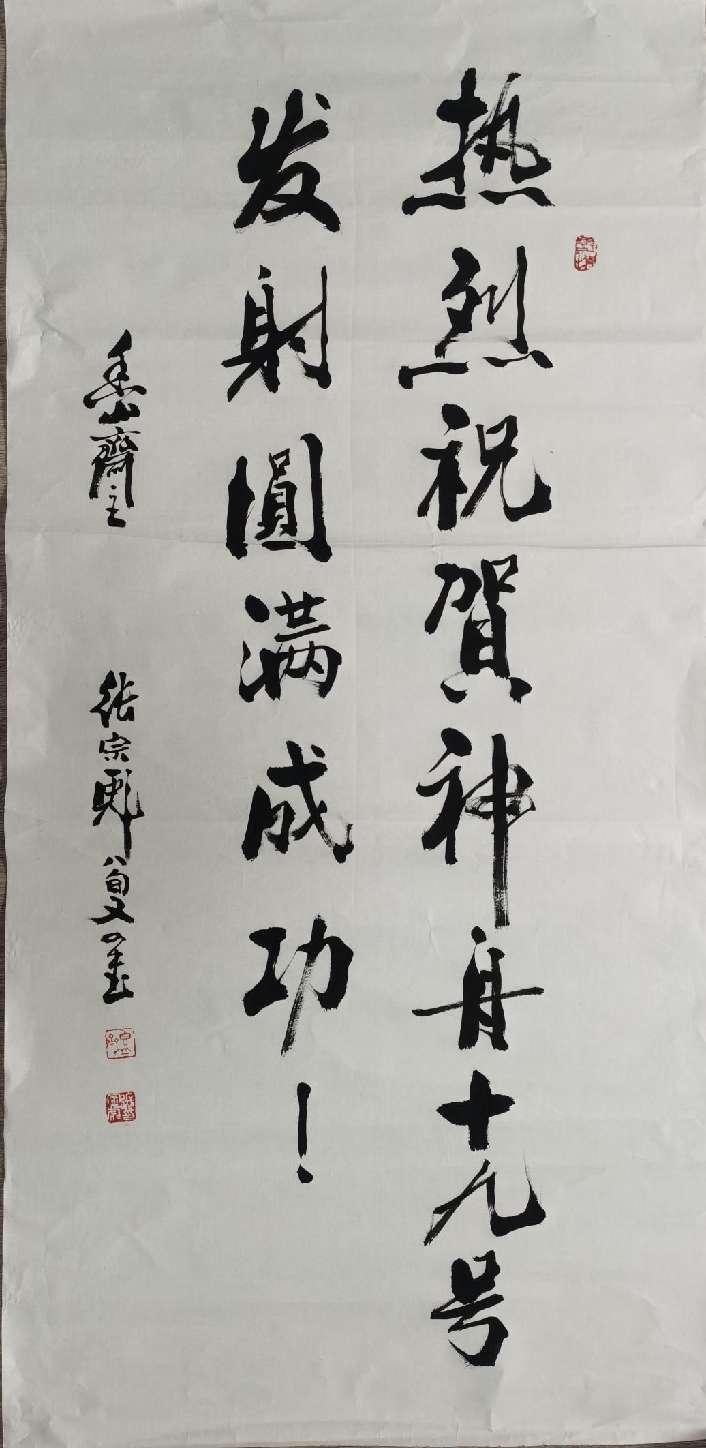 热烈祝贺神舟十九号
发射圓满成功！
香山齋主 张宗彪 八旬又四書